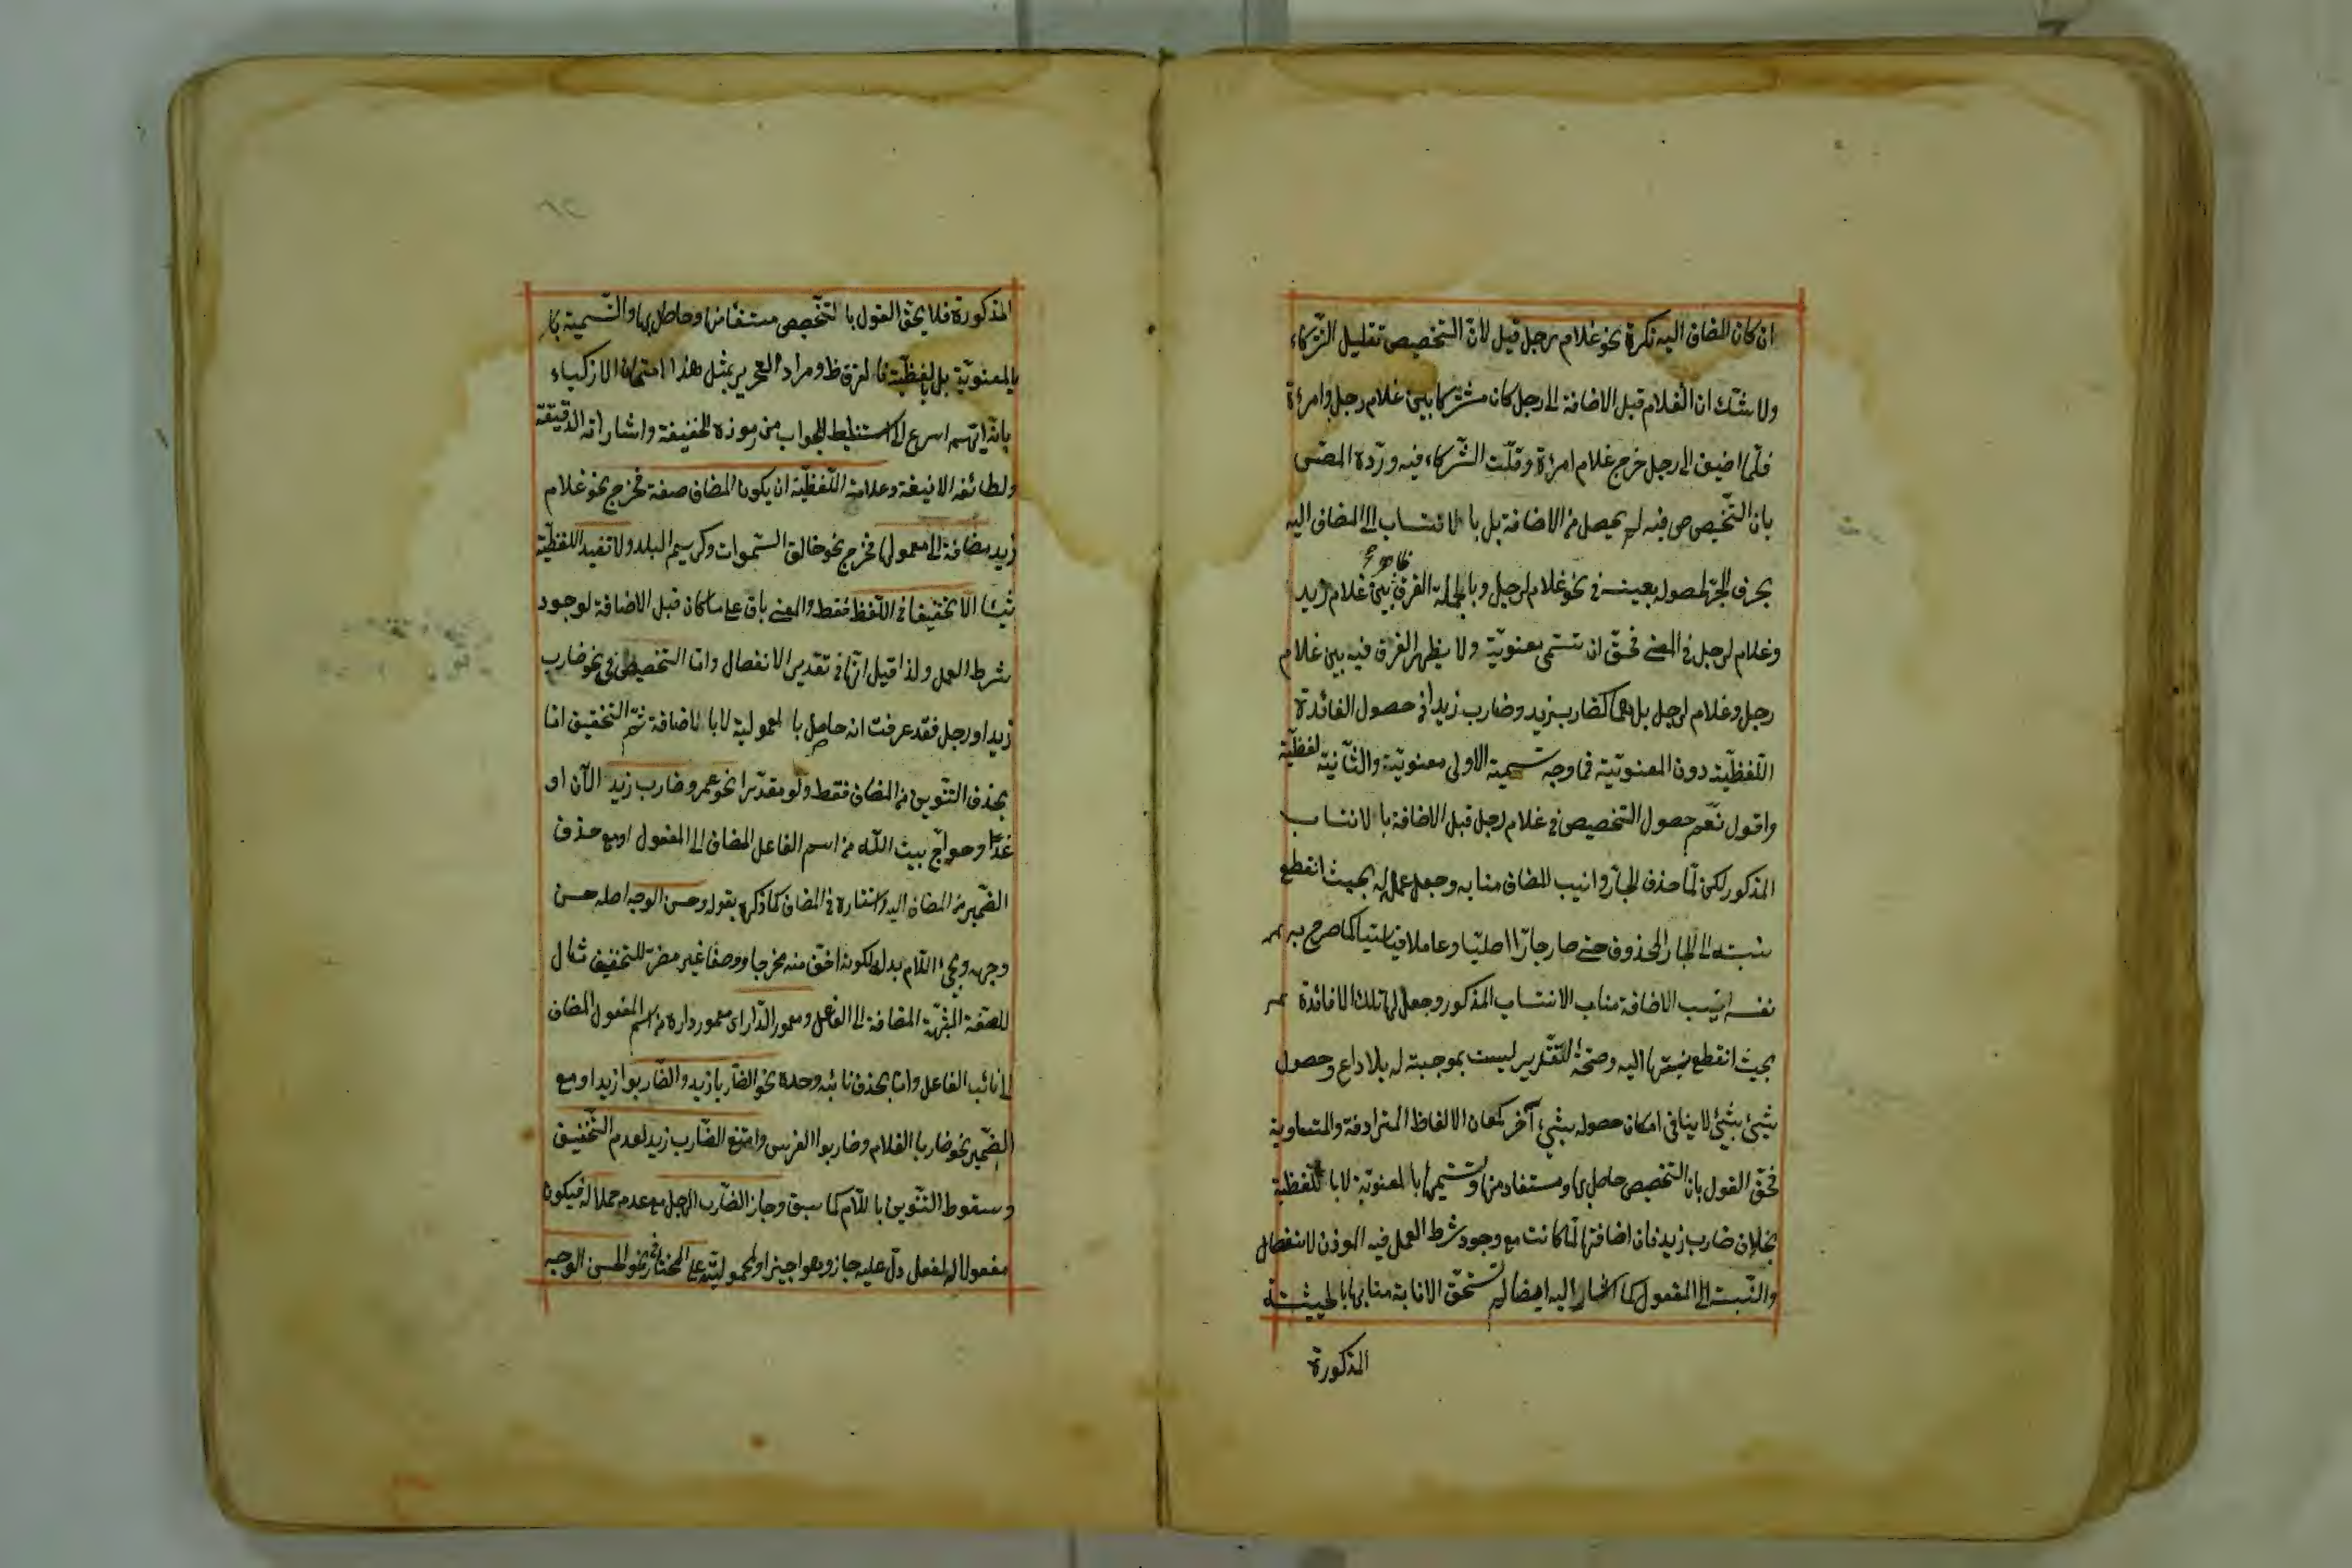 ان كان المضاف اليه نكرة نحو غلام رجل قيل لان التخصيص تقليل الشركاء
ولا شك ان الغلام قبل الاضافة الى رجل كان مشتركا بين غلام رجل وامرءة
فلما اضيف الى رجل خرج غلام امرءة وقلّت الشركاء فيه وردّه المصنّ
بان التخصيص فيه لم يحصل من الاضافة بل بالانتساب الى المضاف اليه
بحرف الجر لحصوله بعينه في نحو غلام لرجل وبالجملة الفرق بين غلام زيد
ظاهر
وغلام لرجل في المعنى فحقّ ان تسمى معنويّة ولا يظهر الفرق فيه بين غلام
رجل وغلام لرجل بل هما كضارب زيد وضارب زيدا في حصول الفائدة
اللّفظيّة دون المعنويّة فما وجه تسمية الاولى معنويّة والثانية لفظيّة
واقول نعم حصول التخصيص في غلام رجل قبل الاضافة بالانتساب
المذكور لكن لمّا حذف الجارّ وانيب المضاف منابه وجعل عمله له بحيث انقطع
نسبته الى الجار المحذوف حتى صار جارّا اصليّا وعاملا قياسيّا كما صرح به
نفسه انيب الاضافة مناب الانتساب المذكور وجعل لها تلك الافادة
بحيث انقطع نسبتها اليه وصحّة التقدير ليست بموجبة له بلا داع وحصول
شيئ بشيئ لا ينافي امكان حصوله بشيئ آخر كمعان الالفاظ المترادفة والمتساوية
فحقّ القول بان التخصيص حاصل بها ومستفاد منها وتسميتها بالمعنويّة لا باللفظية
بخلاف ضارب زيد فان اضافتها لمّا كانت مع وجود شرط العمل فيه الموذن لانفصال
والنسبة الى المفعول كما اشار اليه ايضا لم تستحقّ الانابة منابها بالحيثية
المذكورة
المذكورة فلا يحقّ القول بالتخصيص مستفاد منها وحاصل بها والتسمية
بالمعنويّة بل باللفظيّة فالفرق ظ ومراد النحرير بمثل هذا امتحان الاذكياء
بانّه ايّهم اسرع الى استنباط الجواب من رموزه الخفيفة واشاراته الدقيقة
ولطائفه الانيقة وعلامة اللّفظيّة ان يكون المضاف صفة فخرج نحو غلام
زيد مضافة الى معمولها فخرج نحو خالق السموات وكريم البلد ولا تفيد اللفظيّة
شيئا الا تخفيفا في اللّفظ فقط والمعنى باق على ما كان قبل الاضافة لوجود
شرط العمل ولذا قيل انّها في تقدير الانفصال وامّا التخصيص في نحو ضارب
زيد او رجل فقد عرفت انه حاصل بالمعمولية لا بالاضافة ثمّ التخفيف امّا
بحذف التنوين من المضاف فقط ولو مقدّرا نحو عمرو ضارب زيد الآن او
غدًا وحواجّ بيت الله من اسم الفاعل المضاف الى المفعول او مع حذف
الضمير من المضاف اليه واستتاره في المضاف كما ذكره بقوله وحسن الوجه اصله حسن
وجهه ويجئ اللّام بدله لكونه اخفّ منه مخرجا ووصفا غير مضرّ للتخفيف مثال
للصفة المشبّهة المضافة الى الفاعل ومعمور الدّار اى معمور داره من اسم المفعول المضاف
الى نائب الفاعل وامّا بحذف نائبه وحده نحو الضاربا زيد والضاربوا زيد او مع
الضمير نحو ضاربا الغلام وضاربوا الفرس وامتنع الضّارب زيد لعدم التخفيف
وسقوط التنوين باللّام كما سبق وجاز الضّارب الرجل مع عدم حملا له فيكون
مفعولا له لفعل دلّ عليه جاز وهو اجيز او لحموليّته على المختار في نحو الحسن الوجه